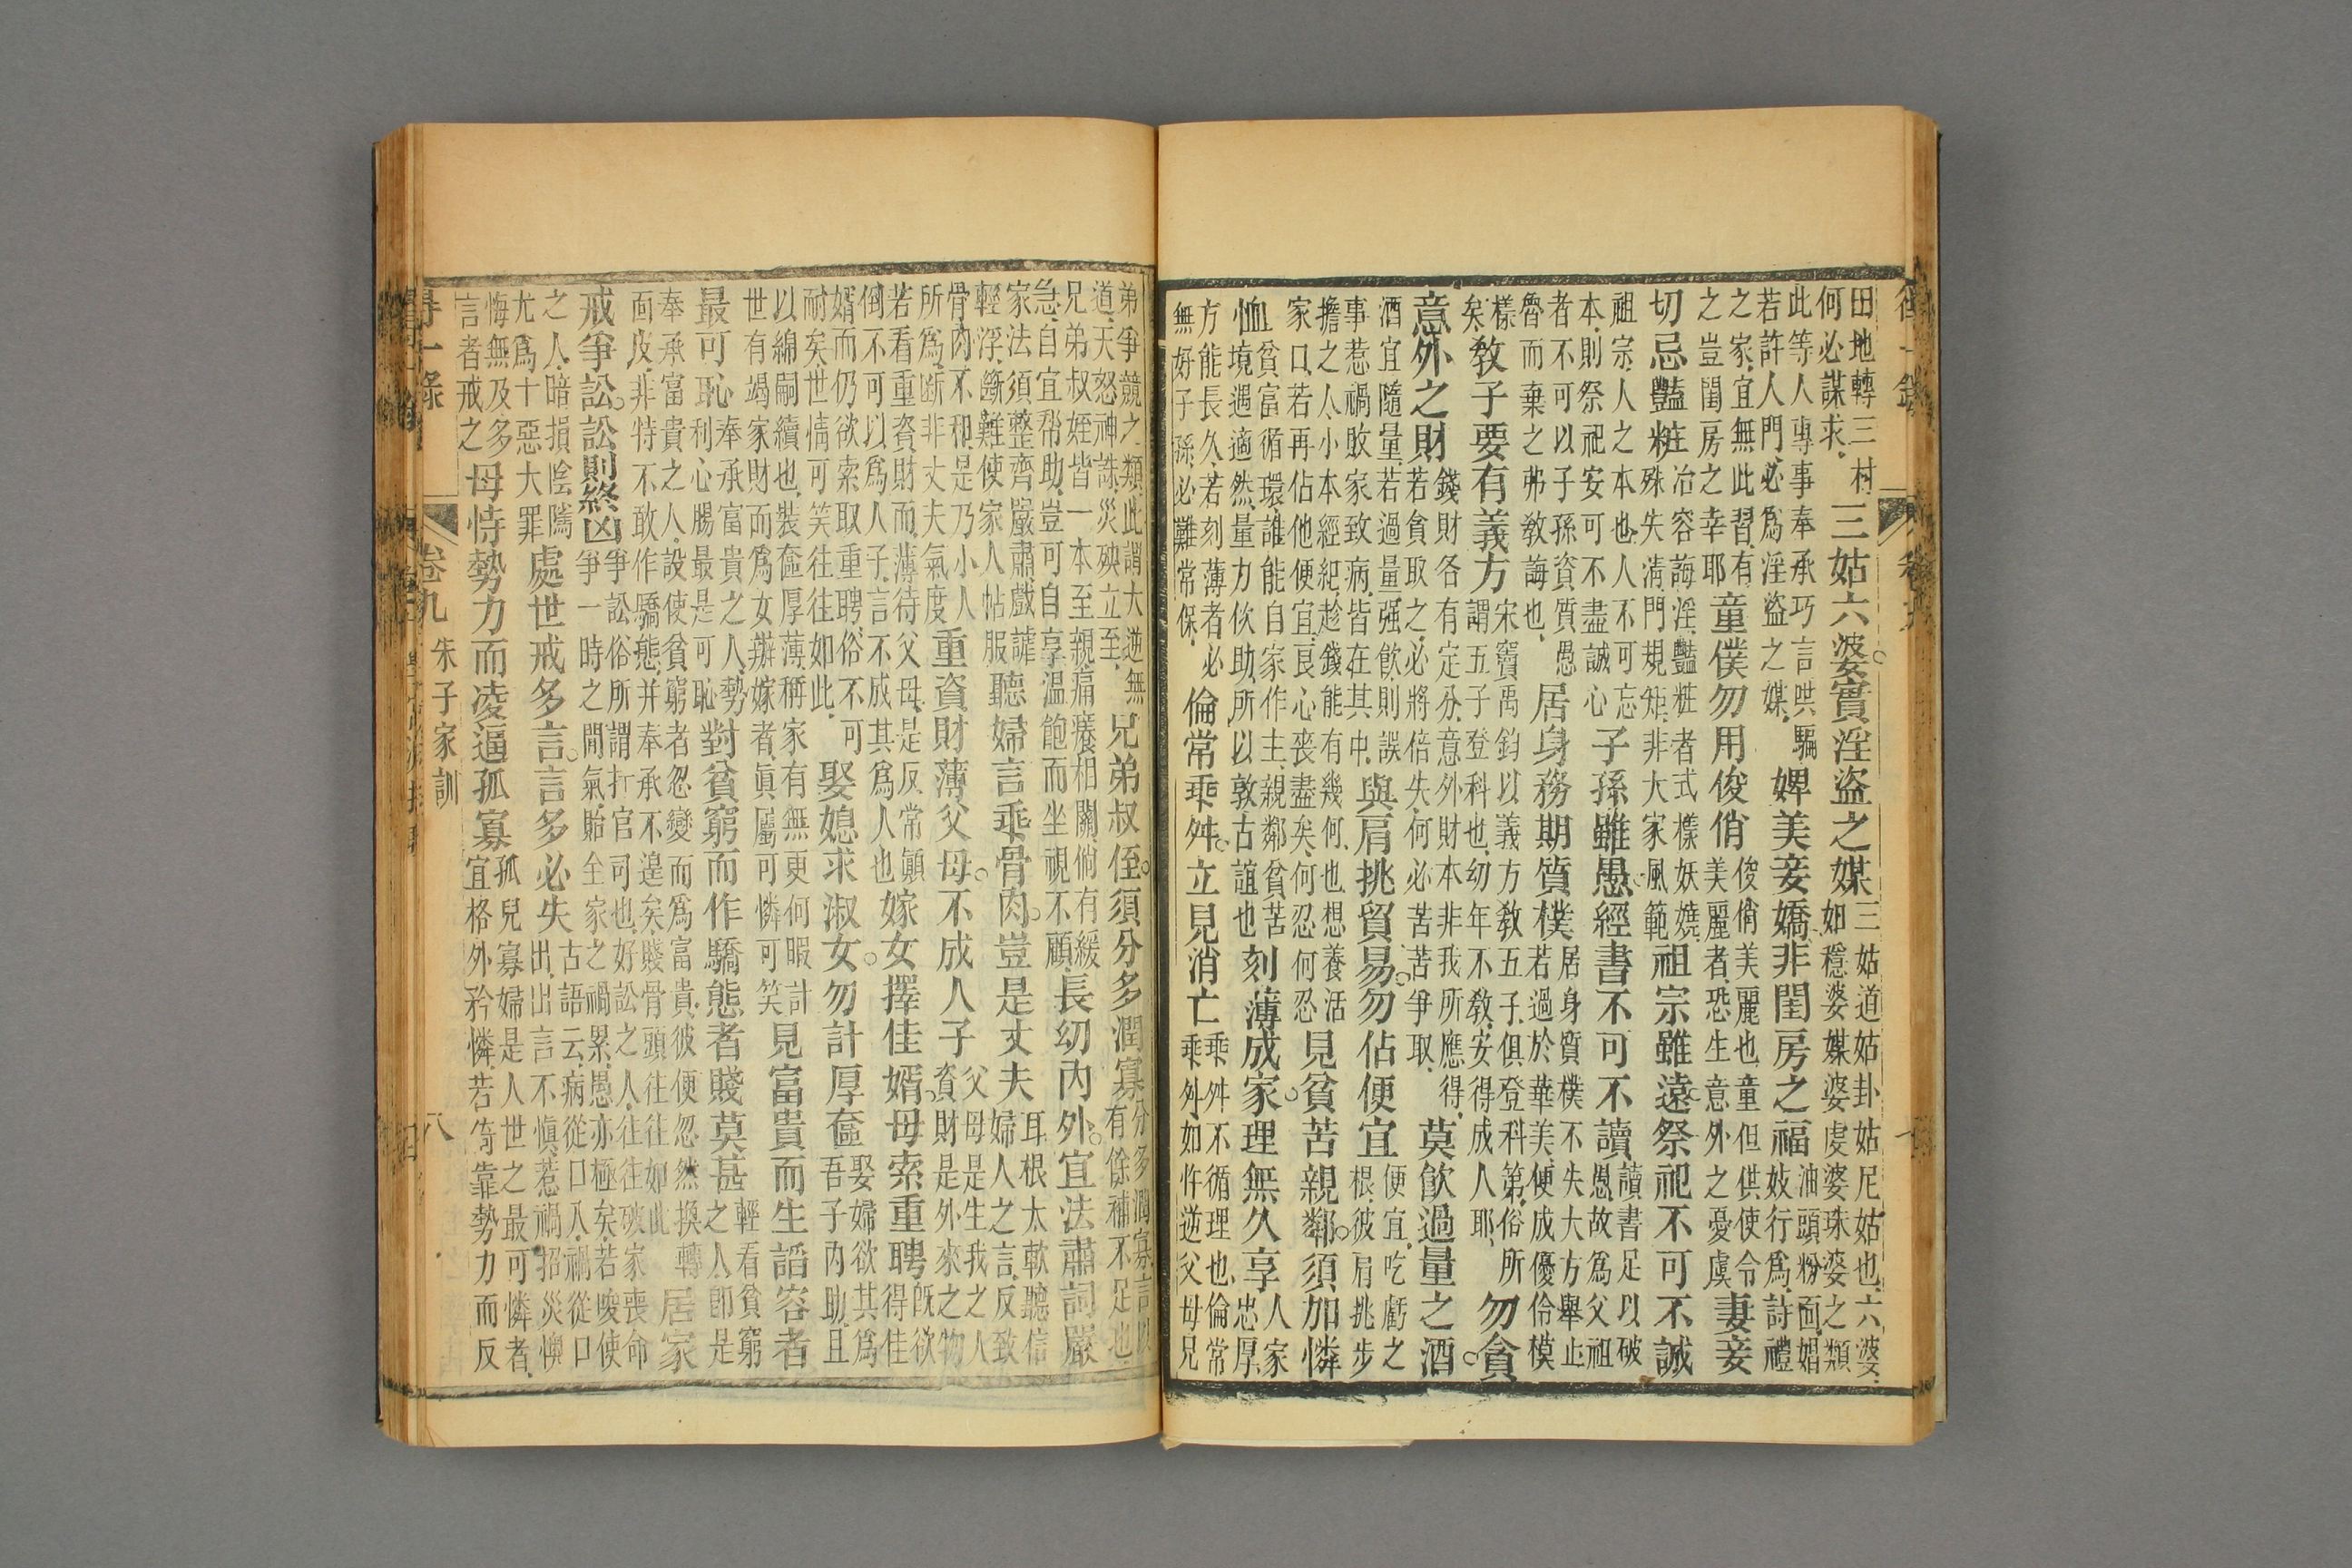 田地轉三村何必謀求三姑六婆實淫盜之媒三姑道姑卦姑尼姑也六婆如穩婆媒婆虔婆珠婆之類
此等人專事奉承巧言哄騙若許人門必為淫盜之媒婢美妾嬌非閨房之福油頭粉面娼妓行為詩禮
之家宜無此習有之豈閨房之幸耶童僕勿用俊俏俊俏美麗也童但供使令美麗者恐生意外之憂虞妻妾
切忌豔粧冶容誨淫豔粧者式樣妖嬈殊失清門規矩非大家風範祖宗雖遠祭祀不可不誠
祖宗人之本也人不可忘本則祭祀安可不盡誠心子孫雖愚經書不可不讀讀書足以破愚故為父祖
者不可以子孫資質愚魯而棄之弗教誨也居身務期質樸居身質樸不失大方舉止若過於華美便成優伶模
樣矣教子要有義方宋竇禹鈞以義方教五子俱登科第俗所謂五子登科也幼年不教安得成人耶勿貪
意外之財錢財各有定分意外財本非我所應得若貪取之必將倍失何必苦苦爭取莫飲過量之酒
酒宜隨量若過量强飲則誤事惹禍敗家致病皆在其中與肩挑貿易勿佔便宜便宜吃虧之根彼肩挑步
擔之人小本經紀趁錢能有幾何也想養活家口若再佔他便宜良心喪盡矣何忍何忍見貧苦親鄰須加憐
恤貧富循環誰能自家作主親鄰貧苦境遇適然量力佽助所以敦古誼也刻薄成家理無久享人家忠厚
方能長久若刻薄者必無好子孫必難常保倫常乖舛立見消亡乖舛不循理也倫常乖舛如忤逆父母兄
弟爭競之類此謂大逆無道天怒神誅災殃立至兄弟叔侄須分多潤寡分多潤寡言以有餘補不足也
兄弟叔姪皆一本至親痛癢相關倘有緩急自宜幇助豈可自享溫飽而坐視不顧長幼內外宜法肅詞嚴
家法須整齊嚴肅戲謔輕浮斷難使家人帖服聽婦言乖骨肉豈是丈夫耳根太軟聽信婦人之言反致
骨肉不和是乃小人所為斷非丈夫氣度重資財薄父母不成人子父母是生我之人資財是外來之物
若看重資財而薄待父母是反常顚倒不可以為人子言不成其為人也嫁女擇佳婿毋索重聘既欲得佳
婿而仍欲索取重聘俗不可耐矣世情可笑往往如此娶媳求淑女勿計厚奩娶婦欲其為吾子內助且
以綿嗣續也裝奩厚薄稱家有無更何暇計世有竭家財而為女辦嫁者眞屬可憐可笑見富貴而生諂容者
最可恥奉承富貴之人勢利心腸最是可恥對貧窮而作驕態者賤莫甚輕看貧窮之人卽是
奉承富貴之人設使貧窮者忽變而為富貴彼便忽然換轉面皮非特不敢作驕態并奉承不遑矣賤骨頭往往如此居家
戒爭訟訟則終凶爭訟俗所謂打官司也好訟之人往往破家喪命爭一時之閒氣貽全家之禍累愚亦極矣若唆使
之人暗損陰隲尤為十惡大罪處世戒多言言多必失古語云病從口入禍從口出出言不愼惹禍招災懊
悔無及多言者戒之毋恃勢力而凌逼孤寡孤兒寡婦是人世之最可憐者宜格外矜憐若倚靠勢力而反
得一錄 卷九 朱子家訓 八